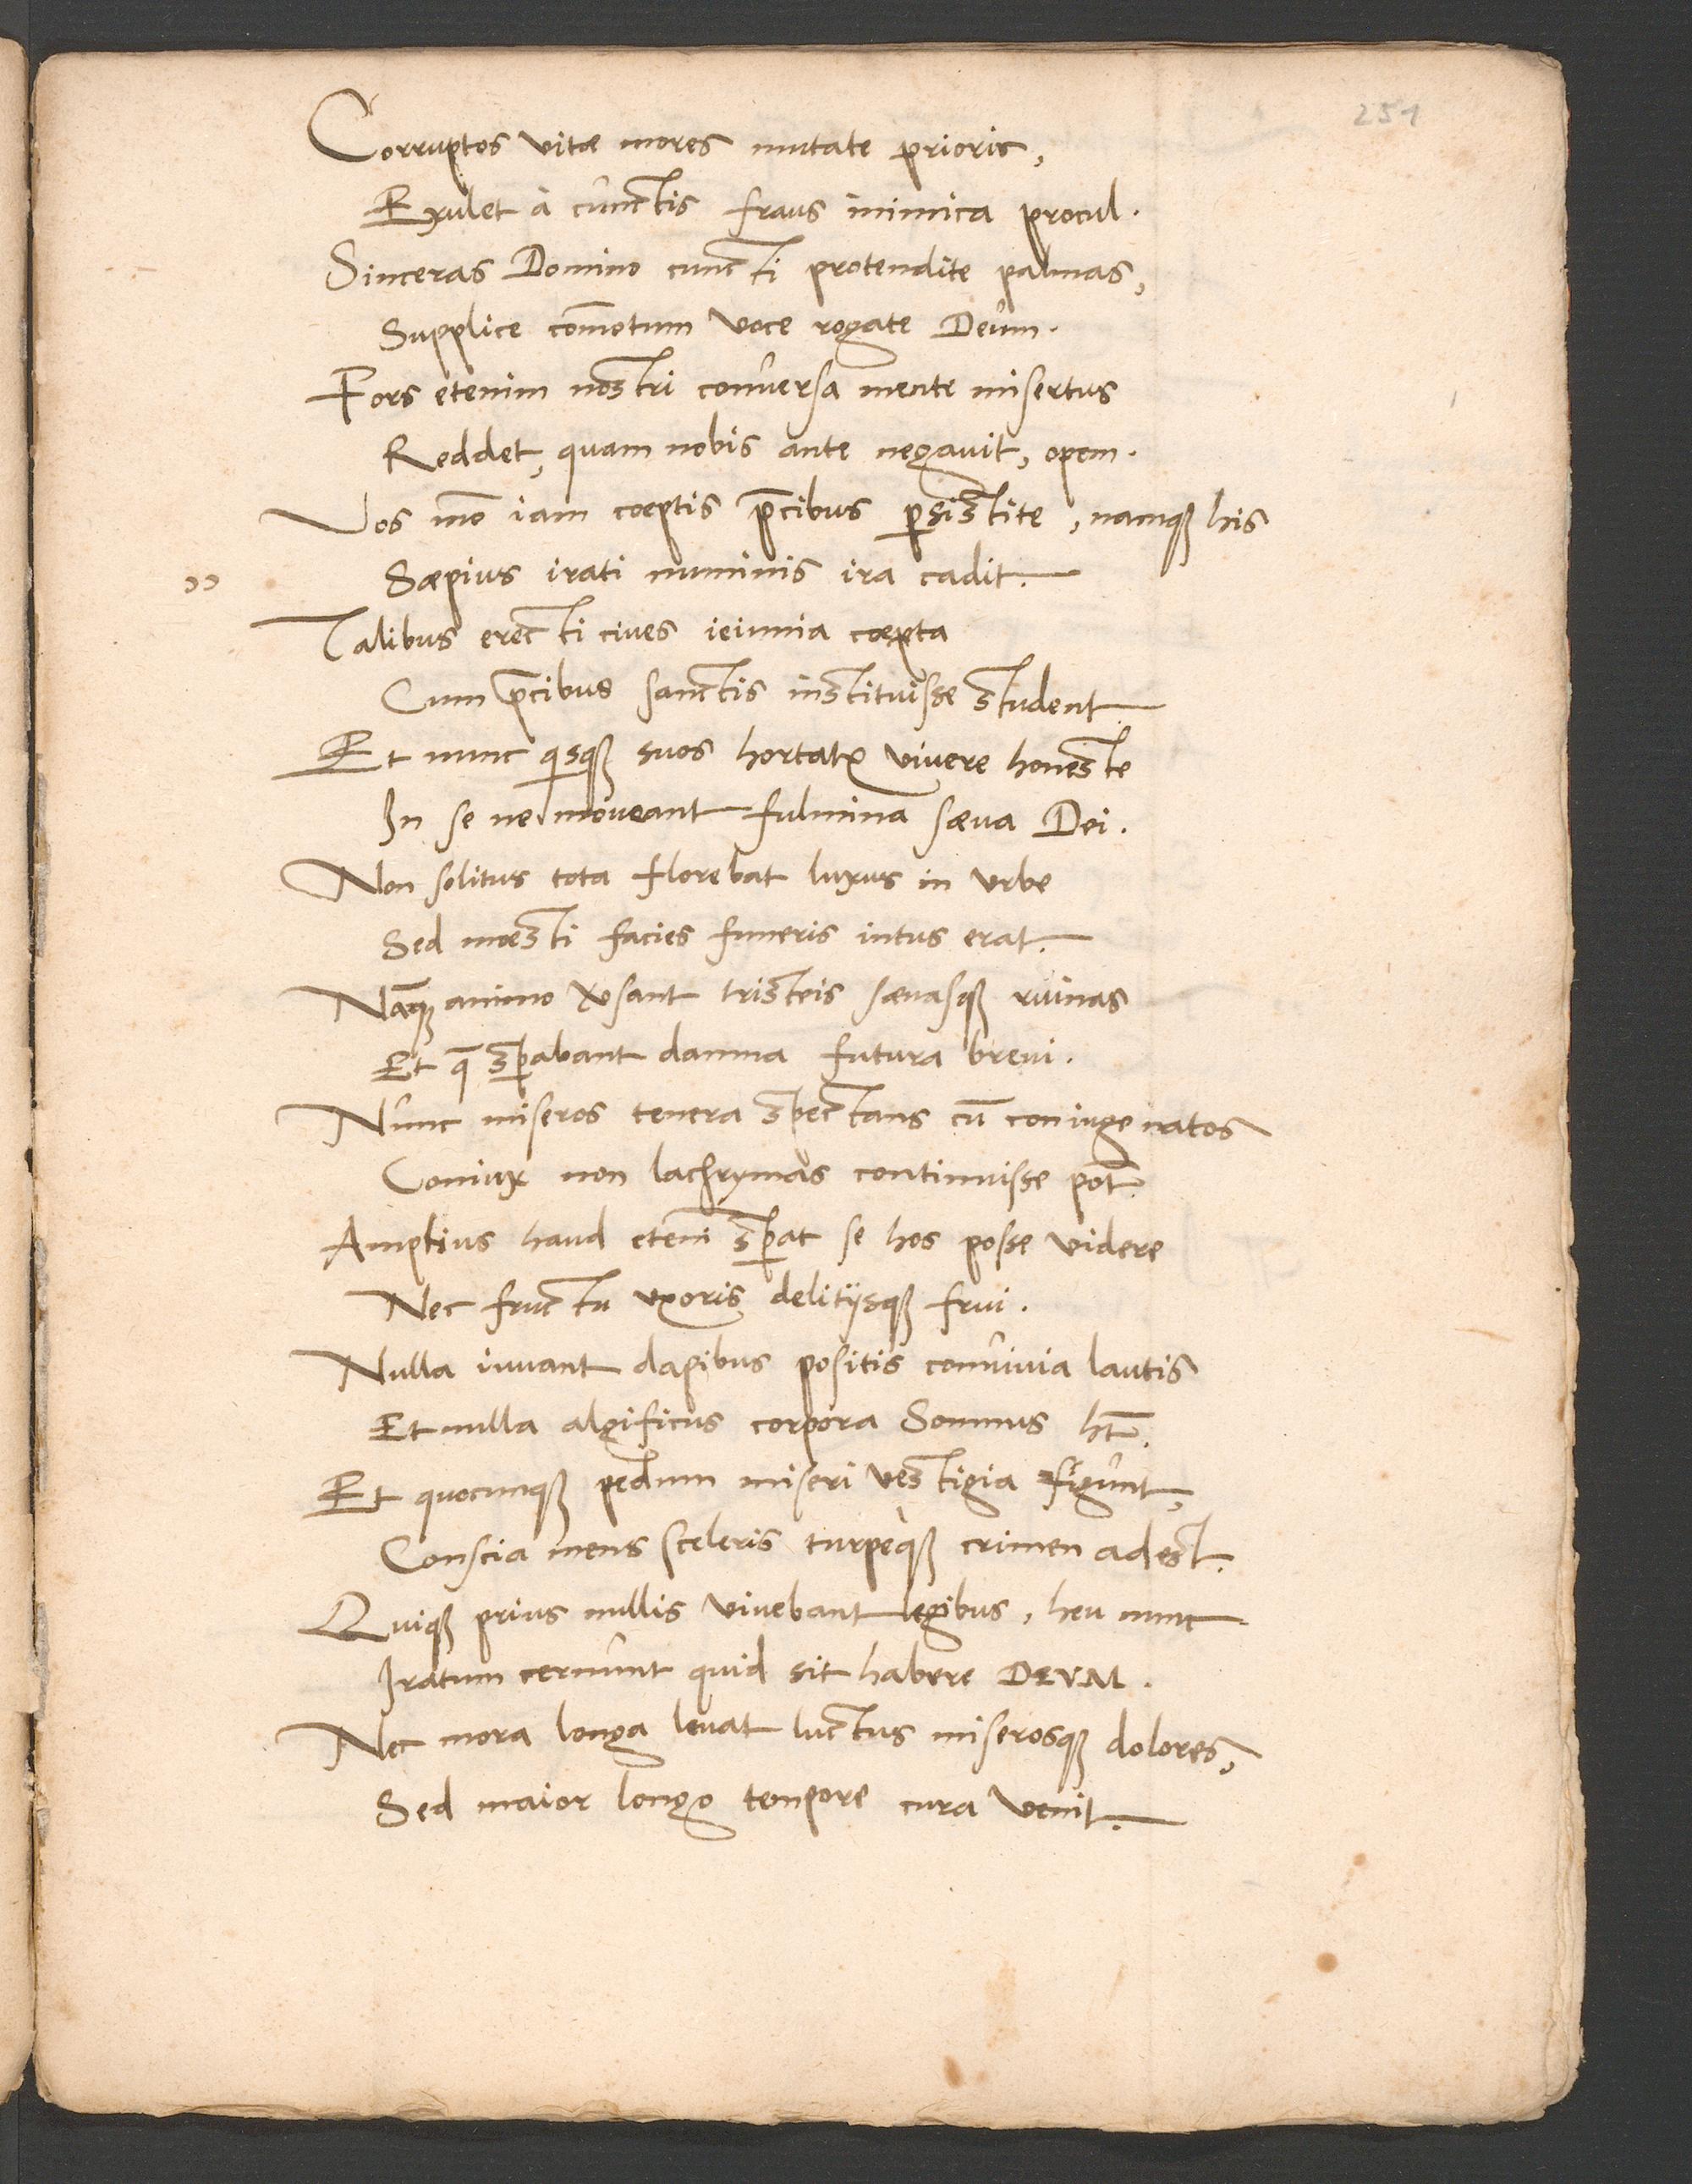 251
Corruptos vitæ mores mutate prioris,
Exulet à cunctis fraus inimica procul.
Sinceras Domino cuncti protendite palmas,
Supplice com̄otum voce rogate Deum.
Fors etenim nostri conuersa mente misertus
Reddet, quam nobis ante negauit, opem.
Vos mō iam cœptis p̄cibus ꝑsistite, namqꝫ his
Sæpius irati numinis ira cadit.
Talibus erecti ciues ieiunia cœpta
Cum p̄cibus sanctis instituisse student.
Et nunc qisqꝫ suos hortatr viuere honeste
In se ne moueant fulmina sæua Dei.
Non solitus tota florebat luxus in vrbe
Sed mœsti facies funeris intus erat.
Nāqꝫ animo v̄sant tristeis sæuasqꝫ ruinas
Et q̄ sꝑabant damna futura breui.
Nunc miseros tenera spectans cū coniuge natos
Coniux non lachrymas continuisse pōt.
Amplius haud etenī sꝑat se hos posse videre
Nec fructu vxoris delitijsqꝫ frui.
Nulla iuuant dapibus positis conuiuia lautis
Et nulla algificus corpora Somnus ht̄.
Et quocunqꝫ pedum miseri vestigia figunt,
Conscia mens sceleris turpèqꝫ crimen adest.
Quiqꝫ prius nullis viuebant legibus, heu nunc
Iratum cernunt quid sit habere DEVM.
Nec mora longa leuat luctus miserosqꝫ dolores,
Sed maior longo tempore cura venit.